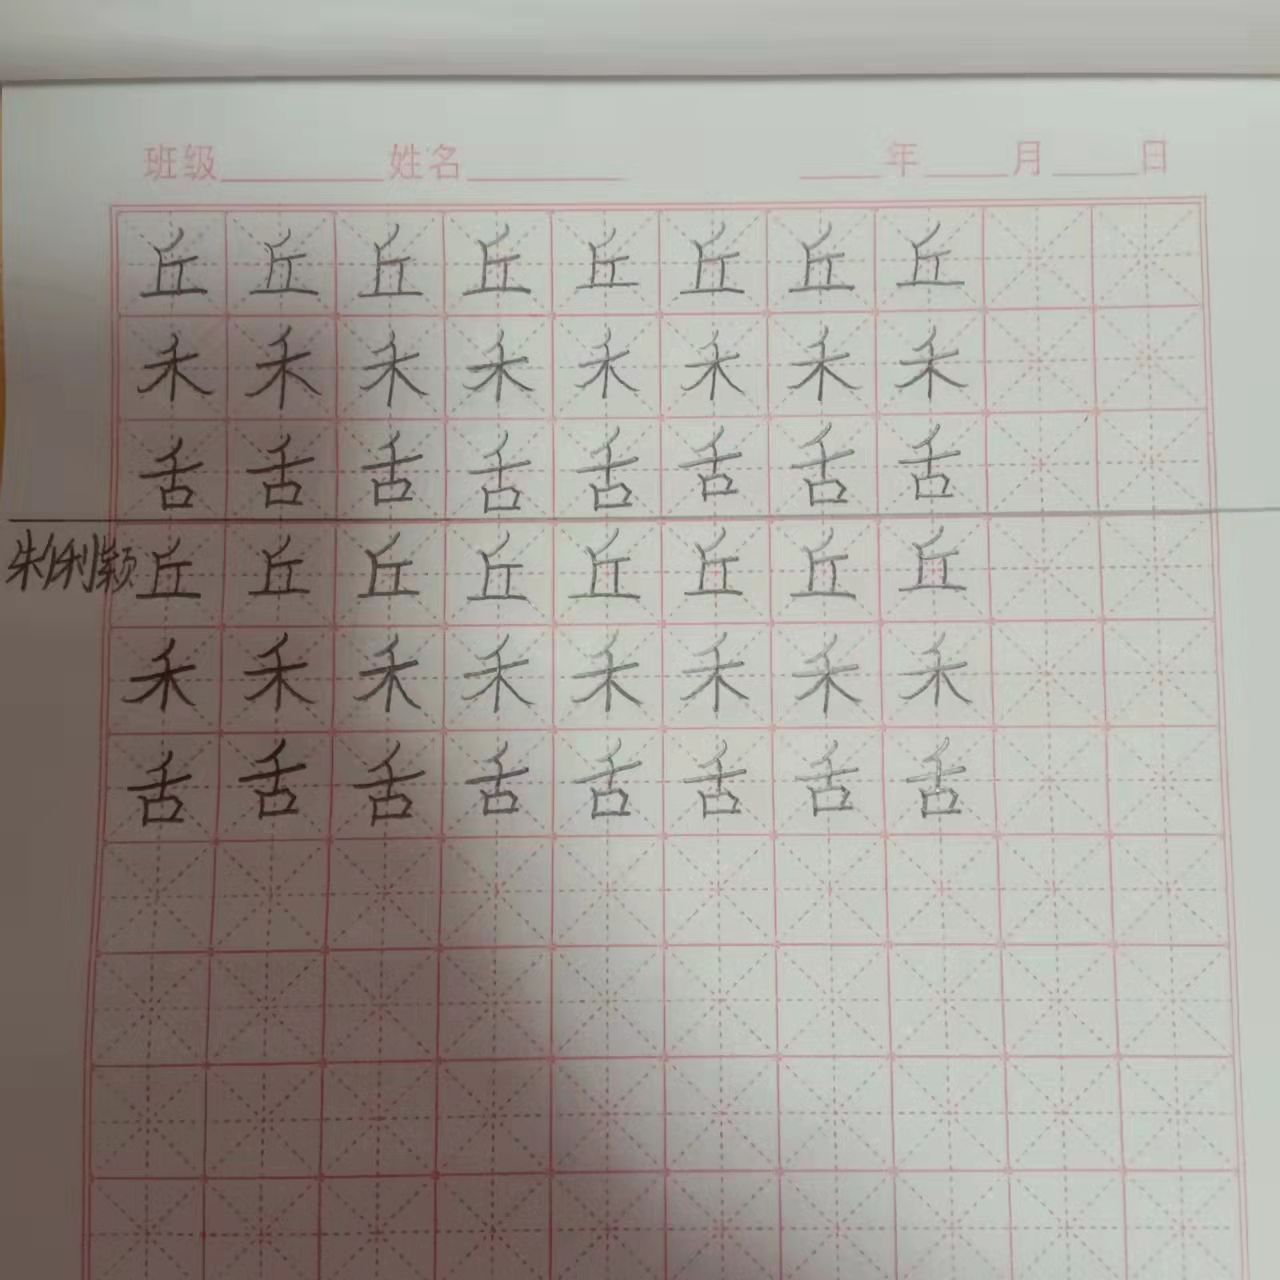 班级 姓名 年 月 日
丘 丘 丘 丘 丘 丘 丘 丘
禾 禾 禾 禾 禾 禾 禾 禾
舌 舌 舌 舌 舌 舌 舌 舌
朱俐颖 丘 丘 丘 丘 丘 丘 丘 丘
禾 禾 禾 禾 禾 禾 禾 禾
舌 舌 舌 舌 舌 舌 舌 舌